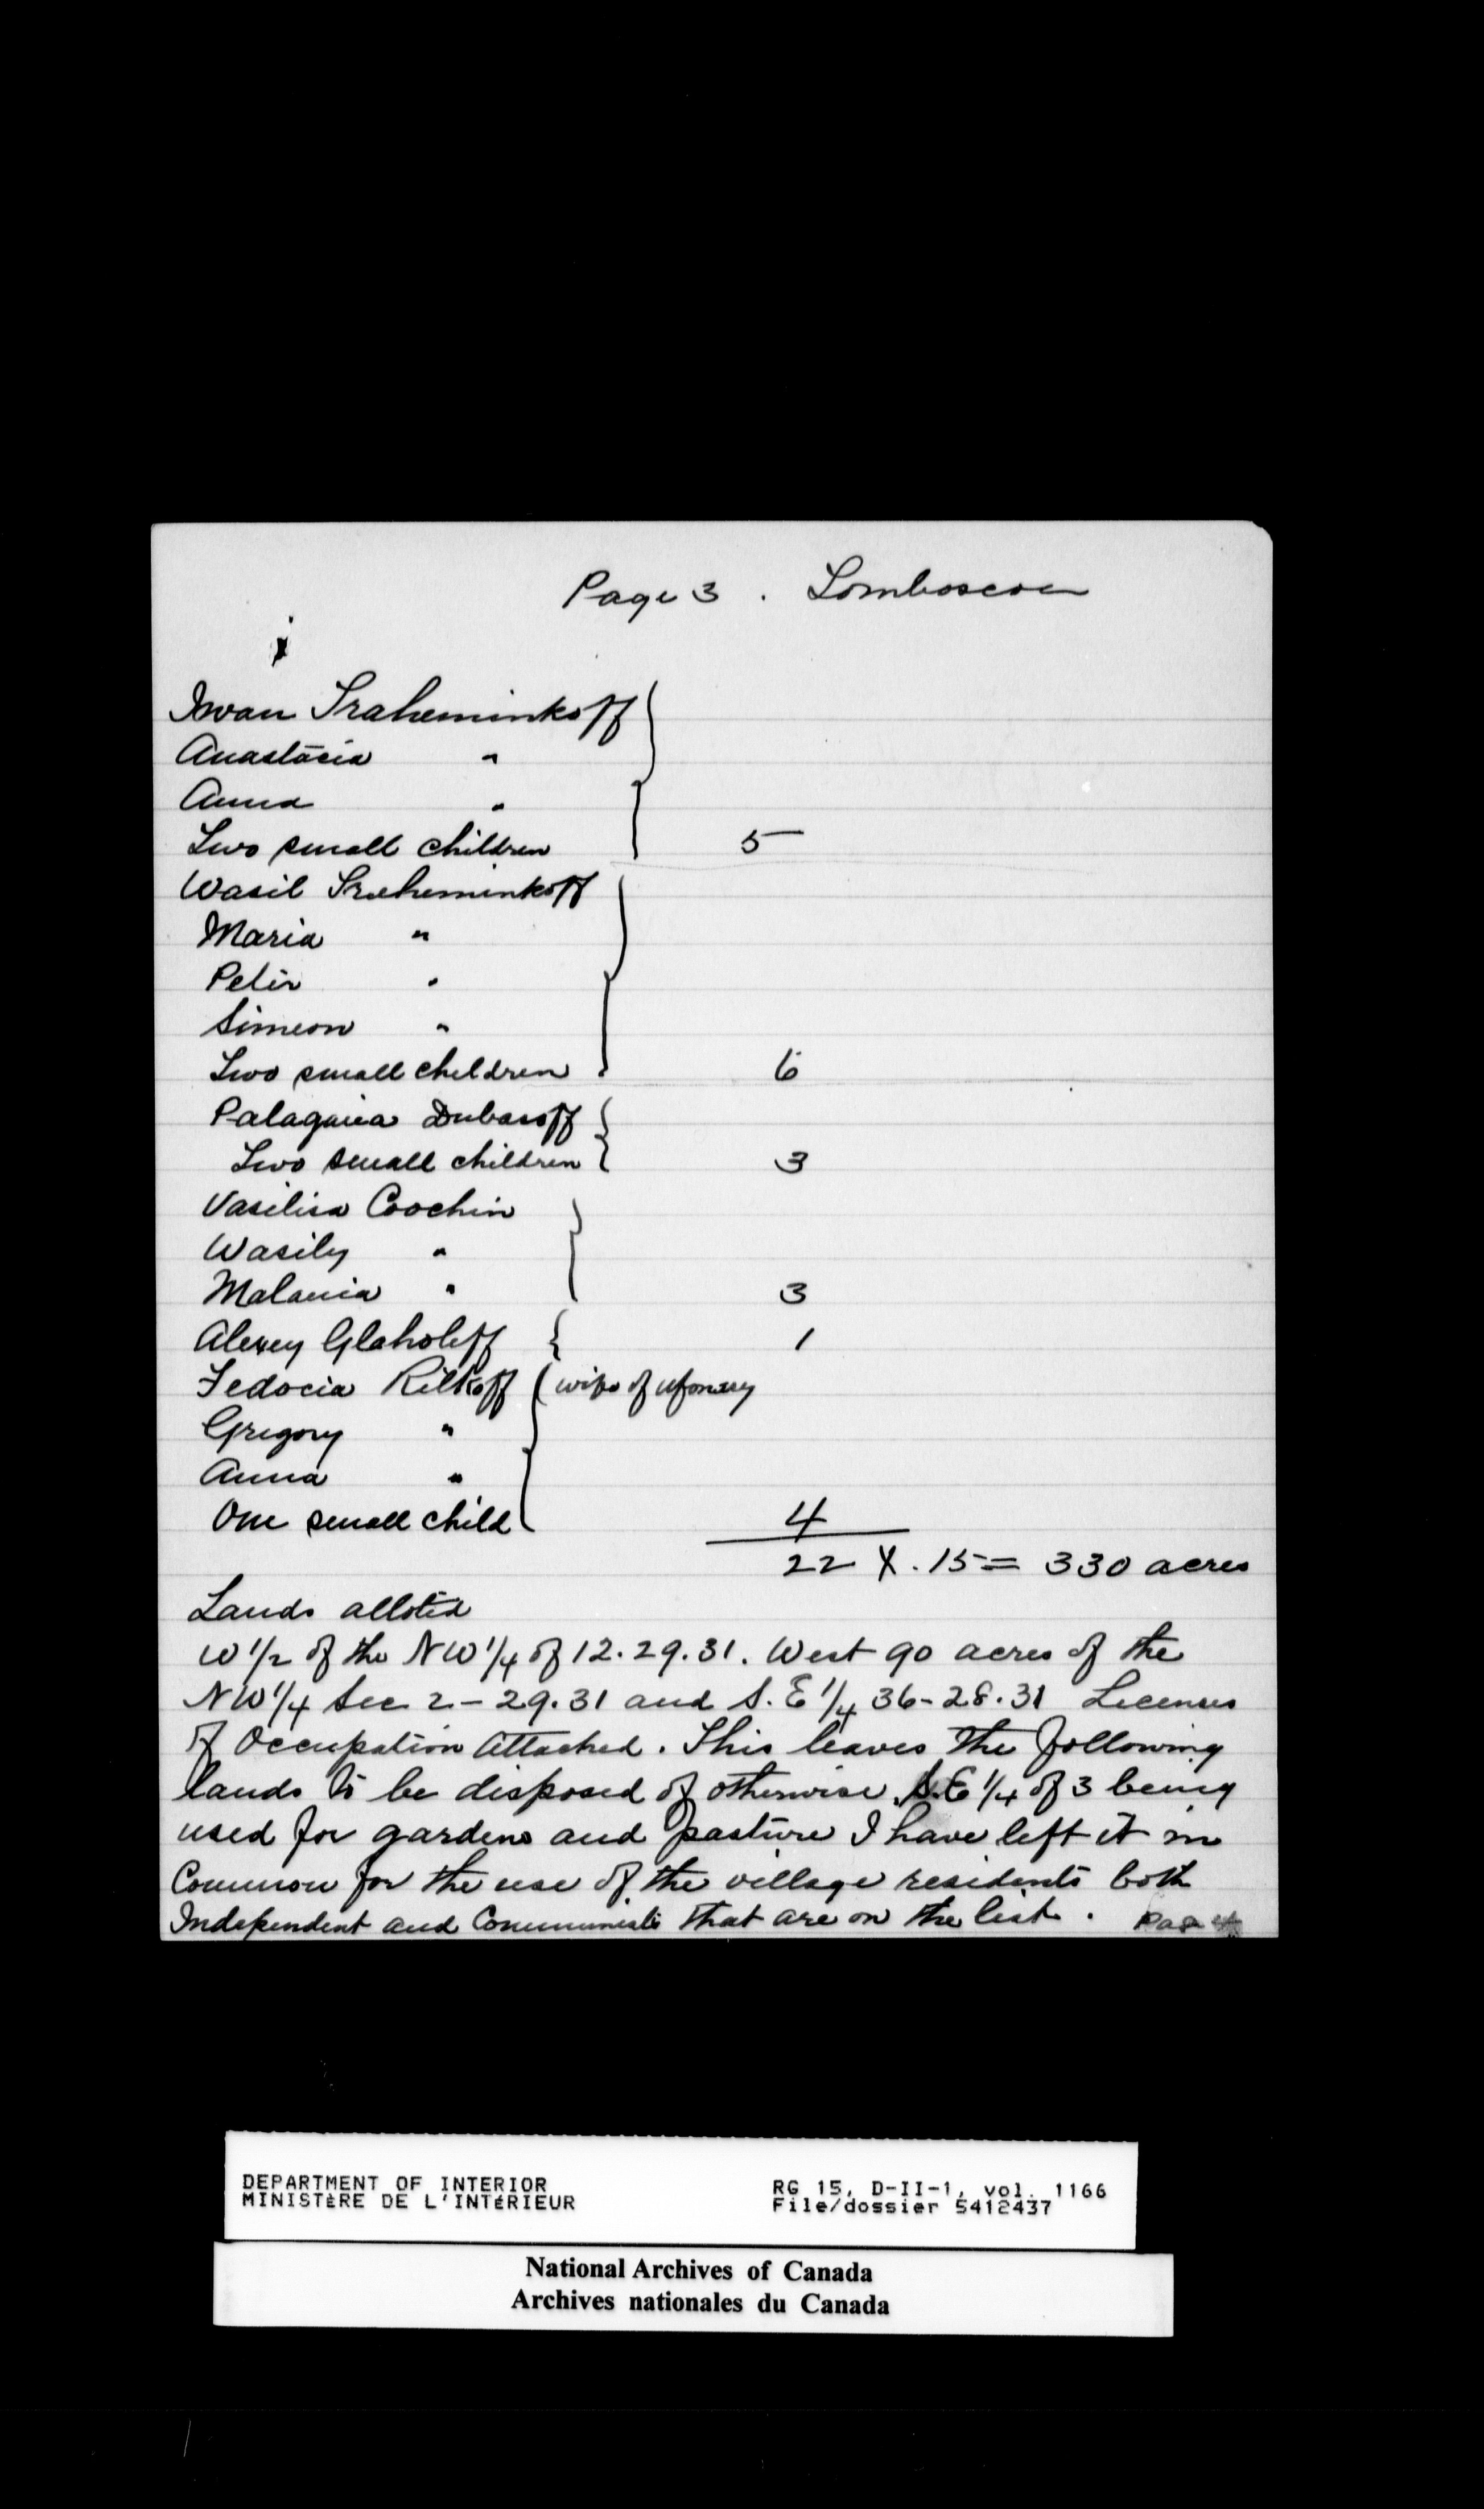 Page 3 . Lomboscou
Iwan Traheminkoff
Anastacia "
Anna "
Two small children 5
Wasil Traheminkoff
Maria "
Peter "
Simeon "
Two small children 6
Palagaia Dubasoff
Two small children 3
Vasilisa Coochin
Wasily "
Malania "  3
Alexey Glaholeff 1
Fedocia Rilkoff (wife of
Gregory "
Anna "
One small child 4
22 X . 15 = 330 acres
Lands alloted
W 1/2 of the NW 1/4 of 12.29.31. West 90 acres of the
NW 1/4 Sec 2 - 29.31 and S.E 1/4 36-28.31 Licenses
of Occupation Attached. This leaves the following
lands to be disposed of otherwise S.E 1/4 of 3 being
used for gardens and pasture I have left it in
Common for the use of the village residents both
Independent and Communists that are on the list.
DEPARTMENT OF INTERIOR
MINISTÈRE DE L'INTÉRIEUR
RG 15, D-II-1, vol. 1166
File/dossier 5412437
National Archives of Canada
Archives nationales du Canada